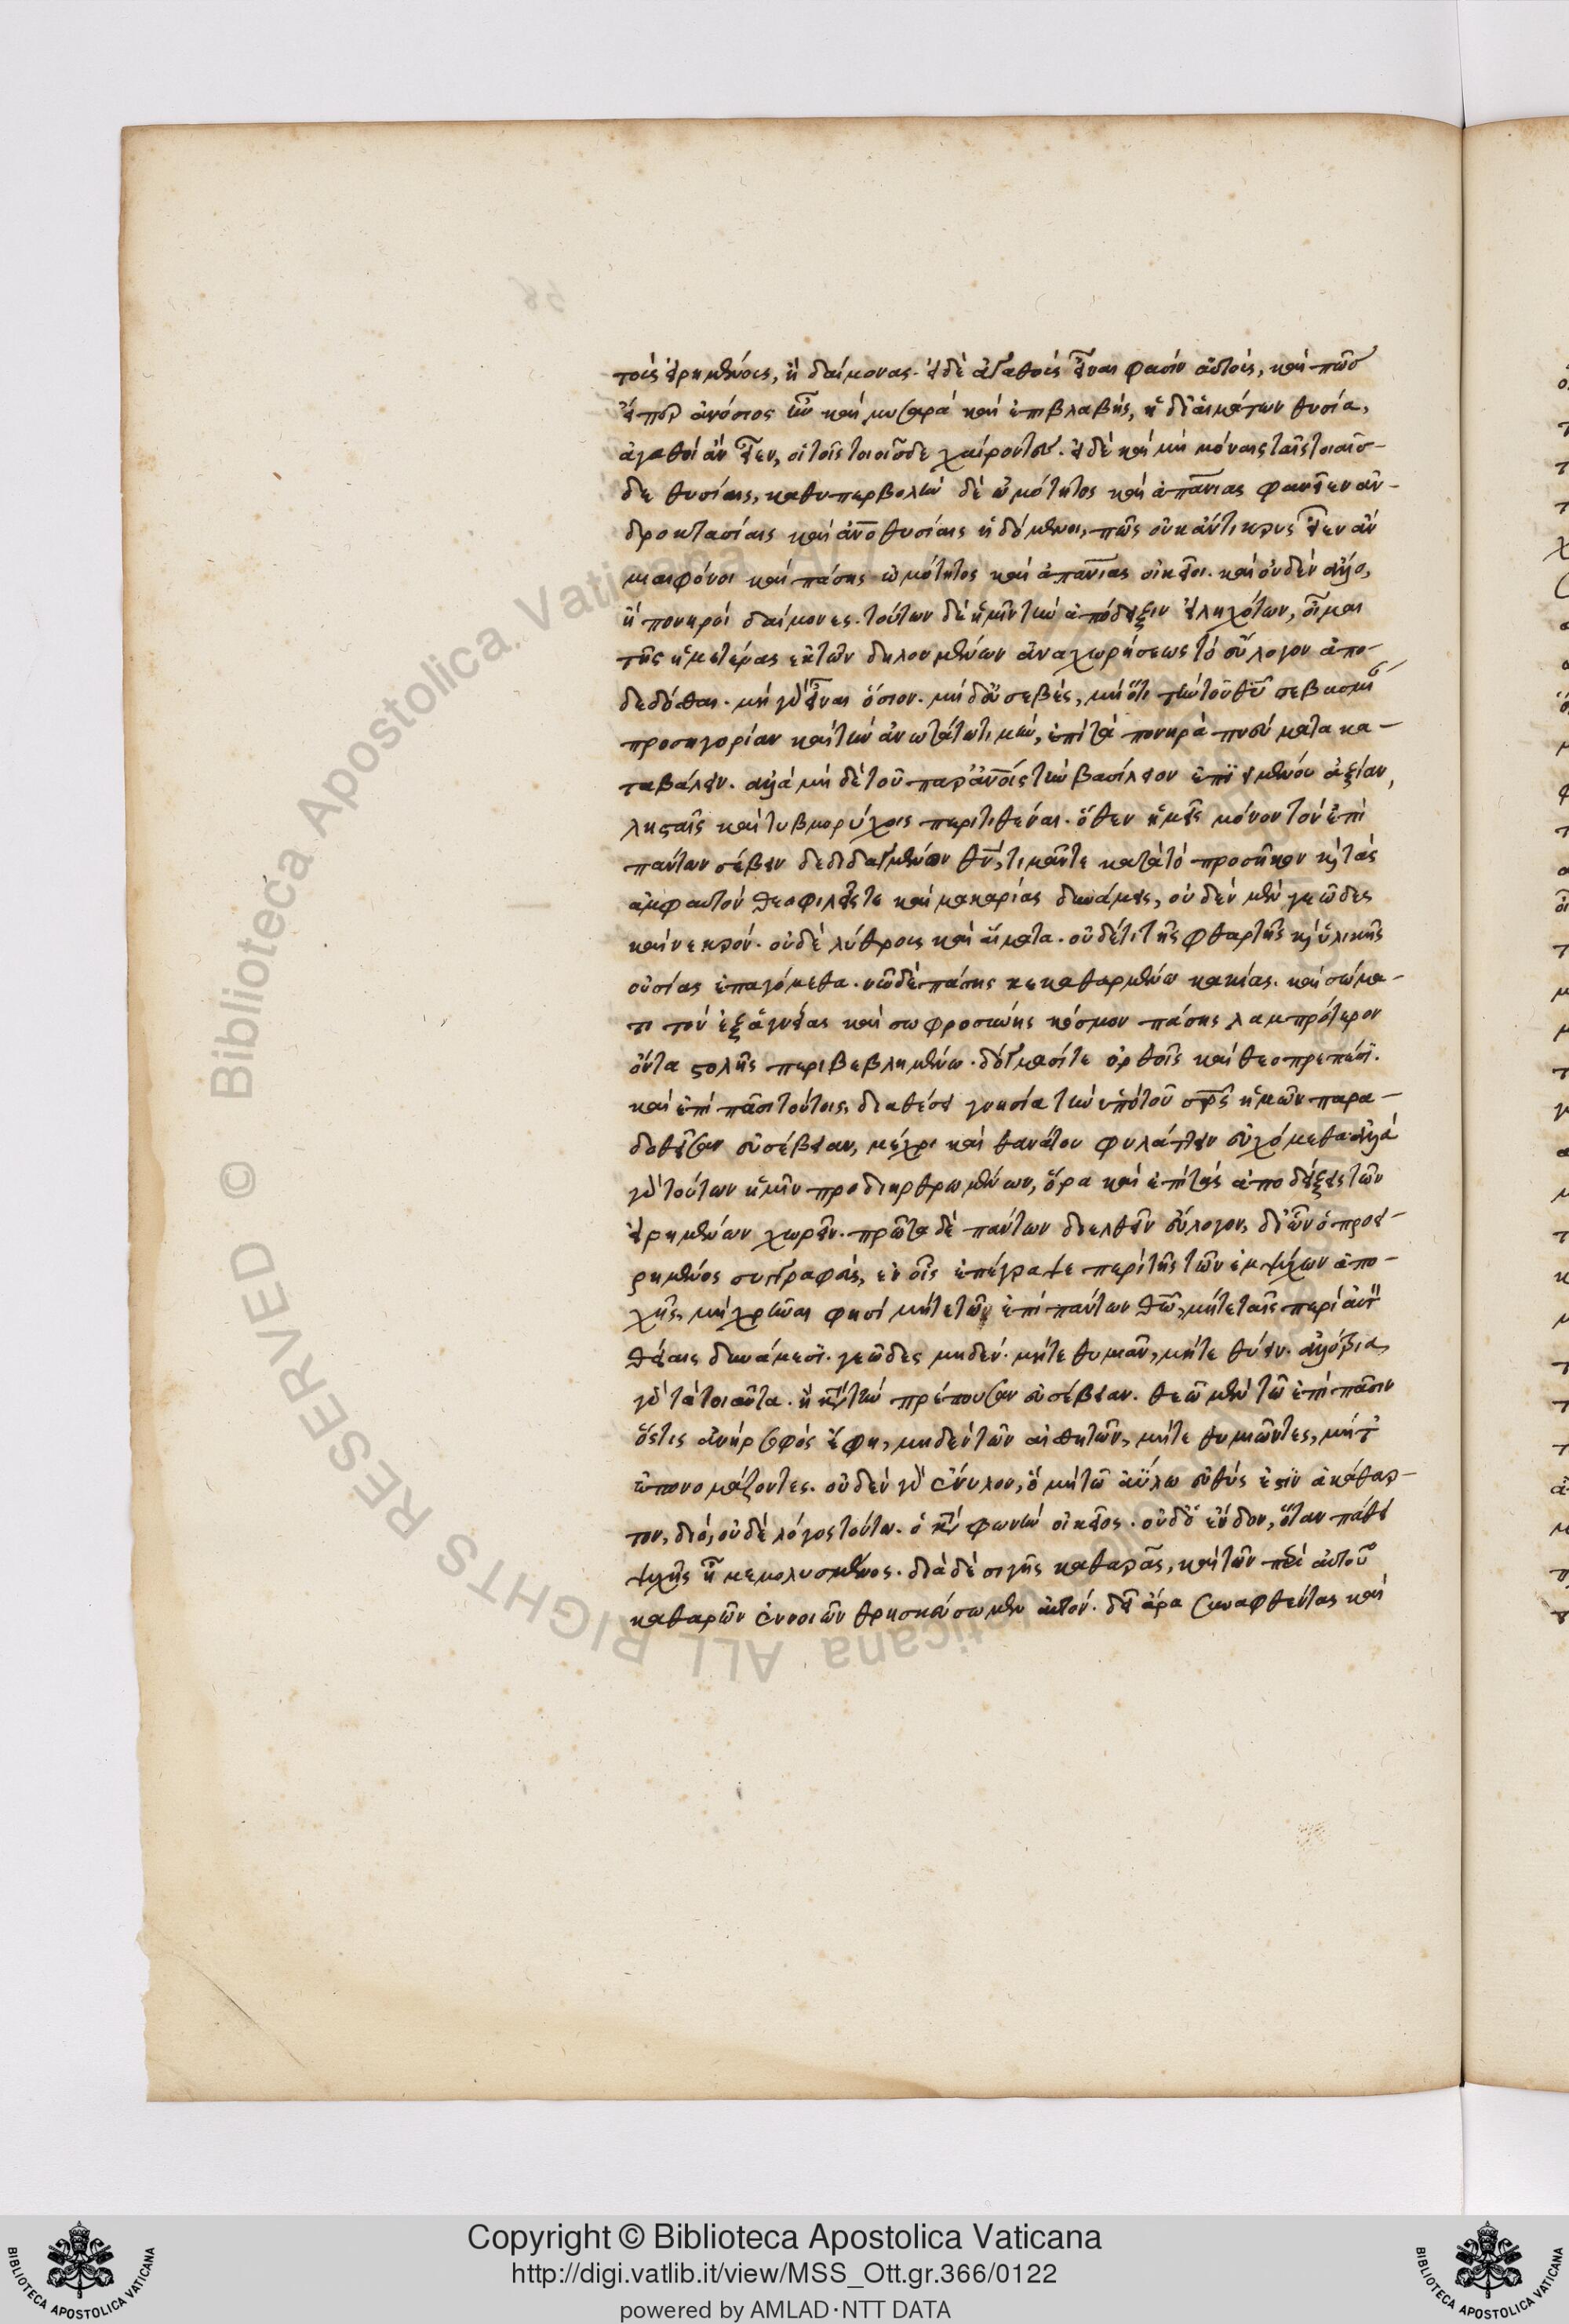 τοῖς εἰρημένοις, ἢ δαίμονας. εἰ δὲ ἀγαθοὺς εἶναι φασὶν αὐτοὺς, καὶ πῶς
εἴπερ ἀνόσιος ἦν καὶ μυσαρὰ καὶ ἐπιβλαβὴς, ἡ δι' αἱμάτων θυσία,
ἀγαθοὶ ἂν εἶεν, οἱ τοῖς τοιοῖσδε χαίροντες. εἰ δὲ καὶ μὴ μόναις ταῖς τοιαῖσ-
δε θυσίαις, καθ' ὑπερβολὴν δὲ ὠμότητος καὶ ἀπανίας φανεῖεν ἀν-
δροκτασίαις καὶ ἀνοθυσίαις ἡδόμενοι, πῶς οὐκ ἄντικρυς εἶεν ἂν
μιαιφόνοι καὶ πάσης ὠμότητος καὶ ἀπανίας οἰκεῖοι. καὶ οὐδὲν ἄλλο,
ἢ πονηροὶ δαίμονες. τούτων δὲ ἡμῖν τὴν ἀπόδειξιν εἰληχότων, οἶμαι
τῆς ἡμετέρας ἐκ τῶν δηλουμένων ἀναχωρήσεως τὸ εὔλογον ἀπο-
δεδόσθαι. μὴ γὰρ εἶναι ὅσιον. μηδ' εὐσεβὲς, μὴ ὅτι τὴν τοῦ θεοῦ σεβασμίον
προσηγορίαν καὶ τὴν ἀνωτάτω τιμὴν, ἐπὶ τὰ πονηρὰ πνεύματα κα-
ταβάλειν. ἀλλὰ μηδὲ τοῦ παρ' ἀνοῖς τὴν βασίλειον ἐπιειμένου ἀξίαν,
λησταῖς καὶ τυμβωρύχοις περιτιθέναι. ὅθεν ἡμεῖς μόνον τὸν ἐπὶ
πάντων σέβειν δεδιδαγμένοι θν, τιμᾶν τε κατὰ τὸ προσῆκον καὶ τὰς
ἀμφ' αὐτὸν θεοφιλεῖς τε καὶ μακαρίας δυνάμεις, οὐδὲν μὲν γεῶδες
καὶ νεκρόν. οὐδὲ λύθροις καὶ αἵματα. οὐδέ τι τῆς φθαρτῆς καὶ ὑλικῆς
οὐσίας ἐπαγόμεθα. νῷ δὲ πάσης κεκαθαρμένῳ κακίας. καὶ σώμα-
τι τὸν ἐξ ἁγνείας καὶ σωφροσύνης κόσμον πάσης λαμπρότερον
ὄντα στολῆς περιβεβλημένῳ. δόγμασί τε ὀρθοῖς καὶ θεοπρεπέσι.
καὶ ἐπὶ πᾶσι τούτοις, διαθέσει γνησίᾳ τὴν ὑπὸ τοῦ σρς ἡμῶν παρα-
δοθεῖσαν εὐσέβειαν, μέχρι καὶ θανάτου φυλάττειν εὐχόμεθα ἀλλὰ
γὰρ τούτων ἡμῖν προδιηρθρωμένων, ὥρα καὶ ἐπὶ τὰς ἀποδείξεις τῶν
εἰρημένων χωρεῖν. πρῶτα δὲ πάντων διελθεῖν εὔλογον, δι' ὧν ὁ προει-
ρημένος συγγραφεὺς, ἐν οἷς ἐπέγραψε περὶ τῆς τῶν ἐμψύχων ἀπο-
χῆς, μὴ χρῆναι φησὶ μήτε τῷ ἐπὶ πάντων θῷ, μήτε ταῖς περὶ αὐτ
θείαις δυνάμεσι. γεῶδες μηδέν. μήτε θυμιᾶν, μήτε θύειν. ἀλλότρια,
γὰρ τὰ τοιαῦτα. ἢ κατὰ τὴν πρέπουσαν εὐσέβειαν. θεῷ μὲν τῷ ἐπὶ πᾶσιν
ὥς τις ἀνὴρ σοφὸς ἔφη, μηδὲν τῶν αἰσθητῶν, μήτε θυμιῶντες, μήτ
ἐπονομάζοντες. οὐδὲν γὰρ ἔνυλον, ὃ μὴ τῷ ἀΰλῳ εὐθύς ἐστιν ἀκάθαρ-
τον, διὸ, οὐδὲ λόγος τούτῳ. ὁ κατὰ φωνὴν οἰκεῖος. οὐδ' ὁ ἔνδον, ὅταν πάθει
ψυχῆς ᾖ μεμολυσμένος. διὰ δὲ σιγῆς καθαρᾶς, καὶ τῶν περὶ αὐτοῦ
καθαρῶν ἐννοιῶν θρησκεύσωμεν αὐτόν. δεῖ ἄρα συναφθέντας καὶ
Copyright © Biblioteca Apostolica Vaticana
http://digi.vatlib.it/view/MSS_Ott.gr.366/0122
powered by AMLAD·NTT DATA